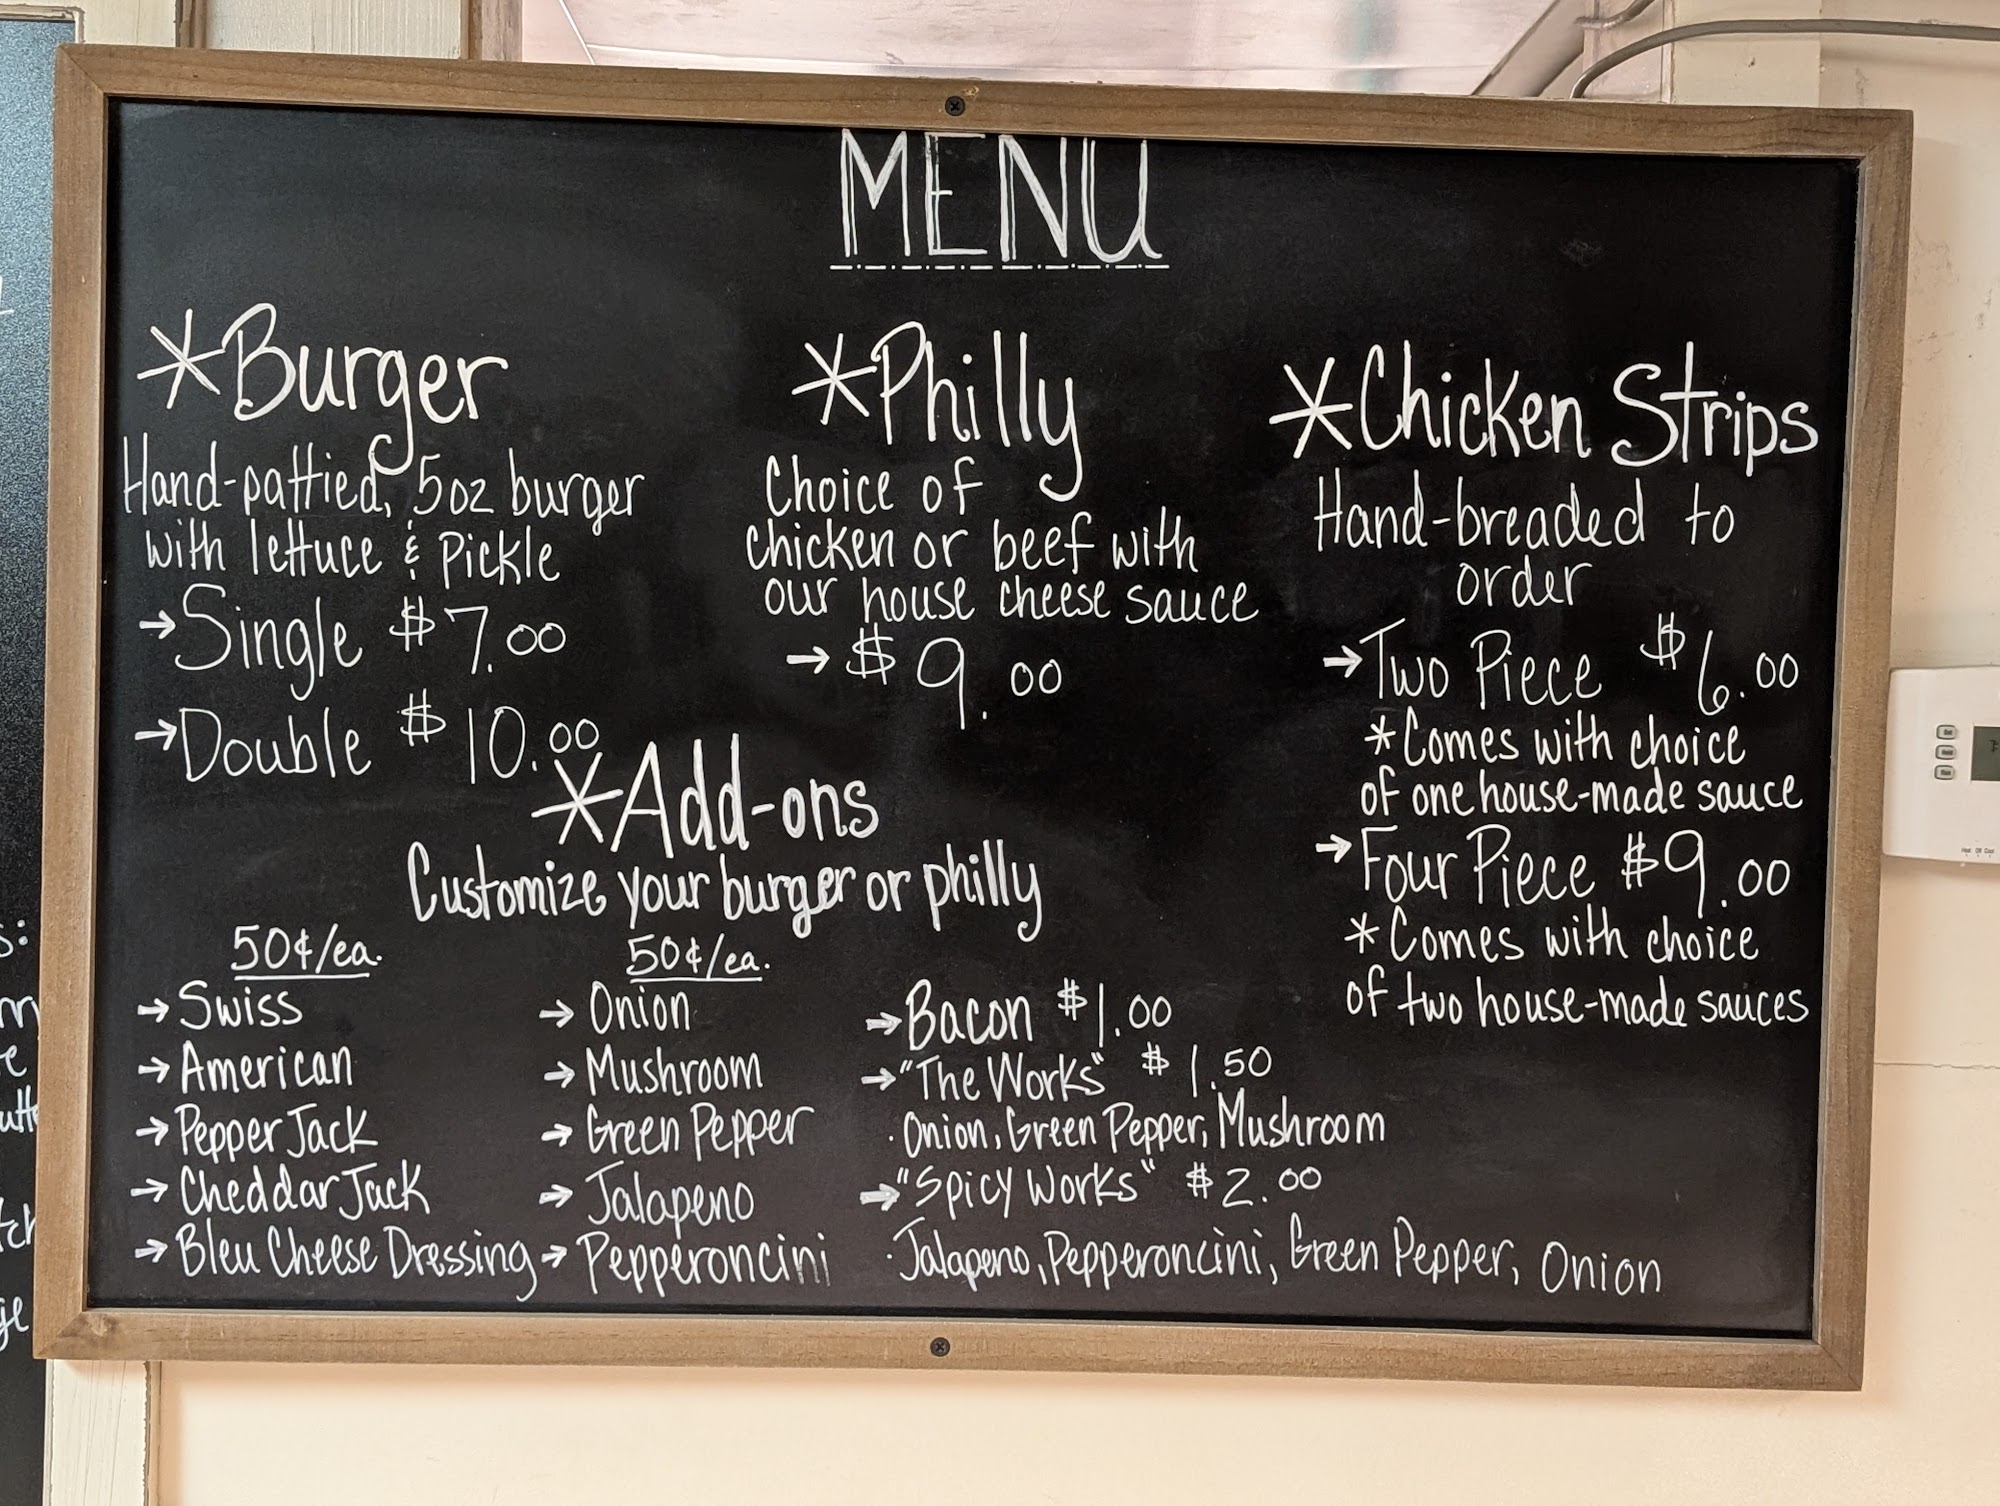 MENU
*Burger
Hand-pattied, 5oz burger
with lettuce & Pickle
→Single $7.00
→Double $10.00
*Philly
Choice of
chicken or beef with
our house cheese sauce
→$9.00
*Chicken Strips
Hand-breaded to
order
→Two Piece $6.00
*Comes with choice
of one house-made sauce
→Four Piece $9.00
*Comes with choice
of two house-made sauces
*Add-ons
Customize your burger or philly
50¢/ea.
→Swiss
→American
→Pepper Jack
→Cheddar Jack
→Bleu Cheese Dressing
50¢/ea.
→Onion
→Mushroom
→Green Pepper
→Jalapeno
→Pepperoncini
→Bacon $1.00
→"The Works" $1.50
·Onion, Green Pepper, Mushroom
→"Spicy Works" $2.00
·Jalapeno, Pepperoncini, Green Pepper, Onion